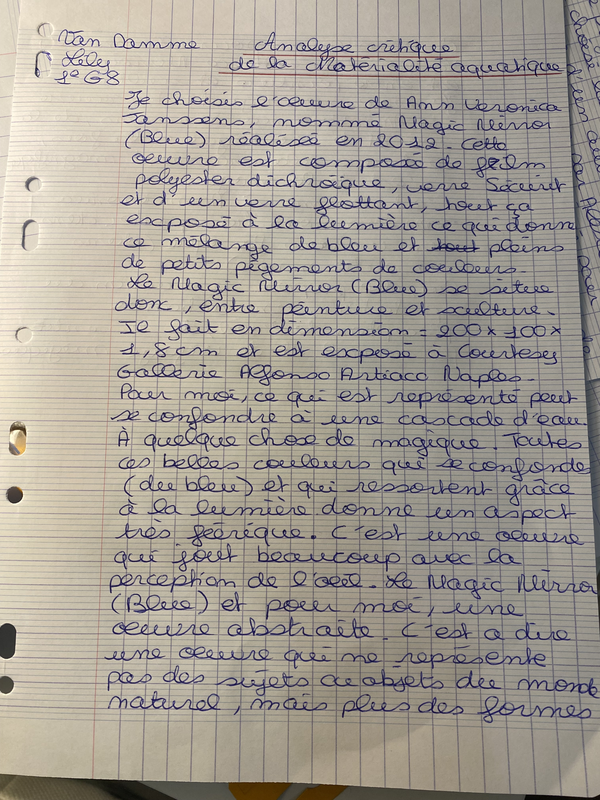 Van Damme Analyse critique
Lily de la Matérialité aquatique
1e G8
Je choisis l'œuvre de Ann Veronica
Janssens, nommé Magic Mirror
(Blue) réalisée en 2012. Cette
œuvre est composé de film
polyester dichroïque, verre Sécurit
et d'un verre flottant, tout ça
exposé à la lumière ce qui donne
ce mélange de bleu et pleins
de petits pigements de couleurs.
Le Magic Mirror (Blue) se situe
donc, entre peinture et sculture.
Il fait en dimension = 200 x 100 x
1,8 cm et est exposé à Courtesy
Gallerie Alfonso Artiaco Naples.
Pour moi, ce qui est représenté peut
se confondre à une cascade d'eau.
À quelque chose de magique. Toutes
ces belles couleurs qui se confonde
(du bleu) et qui ressortent grâce
à la lumière donne un aspect
très féérique. C'est une oeuvre
qui jout beaucoup avec la
perception de l'œil. Le Magic Mirror
(Blue) et pour moi, une
oeuvre abstraite. C'est a dire
une oeuvre qui ne représente
pas des sujets ou objets du monde
naturel, mais plus des formes